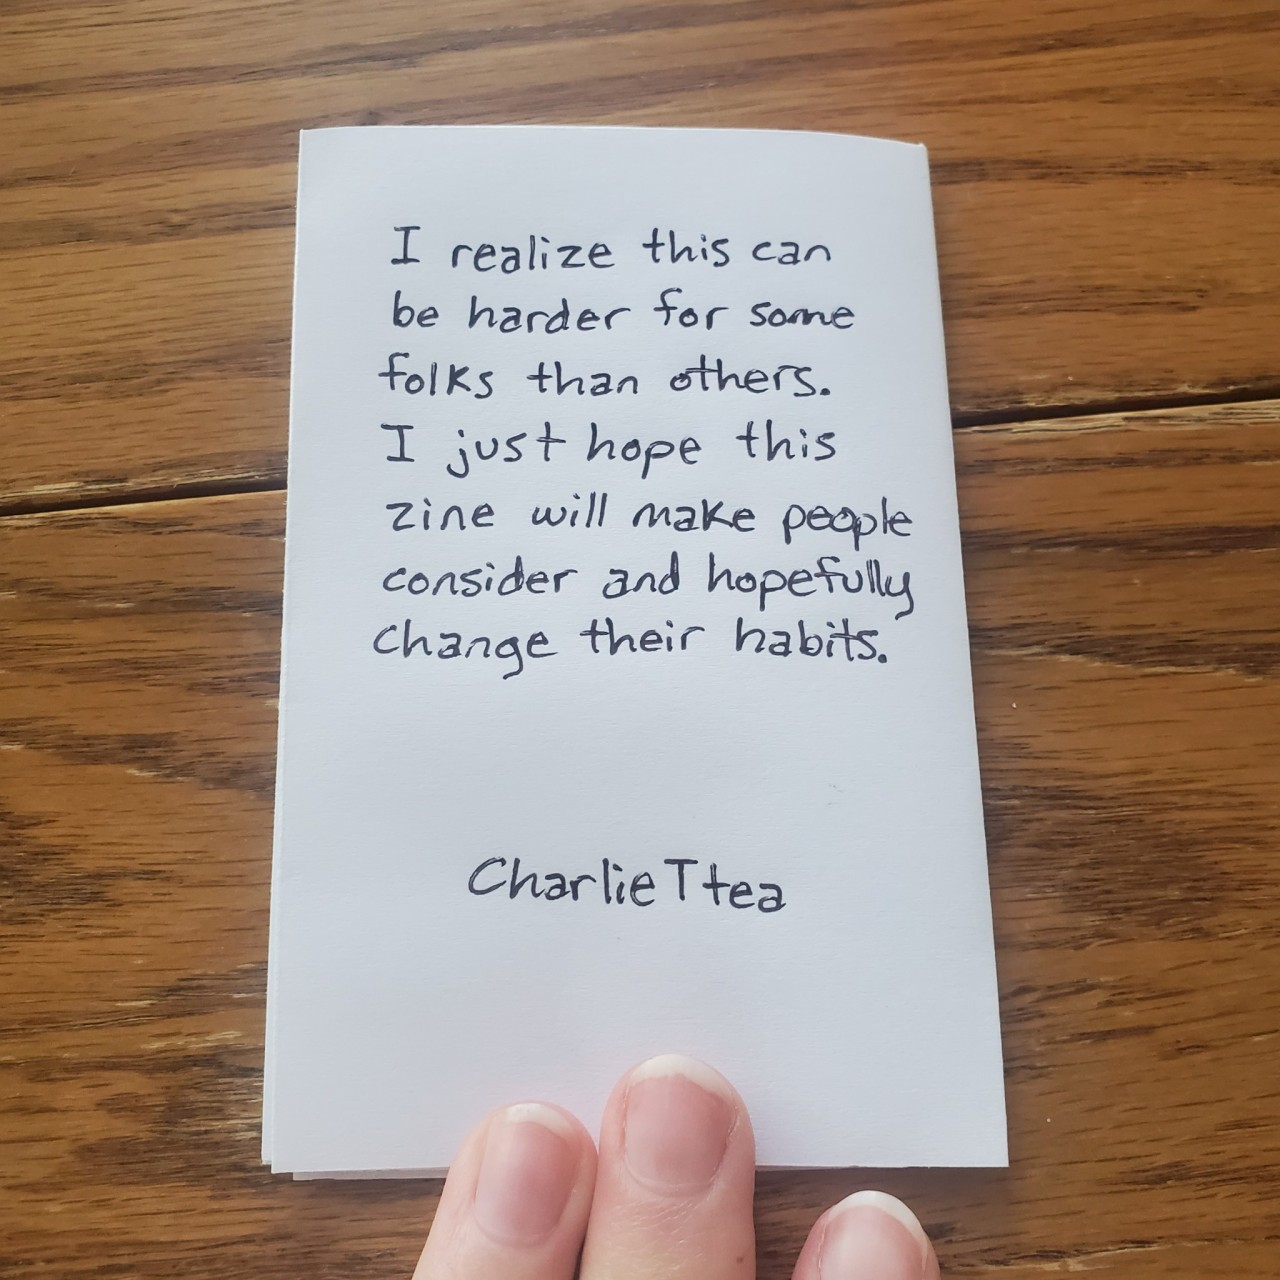 I realize this can
be harder for some
folks than others.
I just hope this
zine will make people
consider and hopefully
change their habits.
Charlie T tea